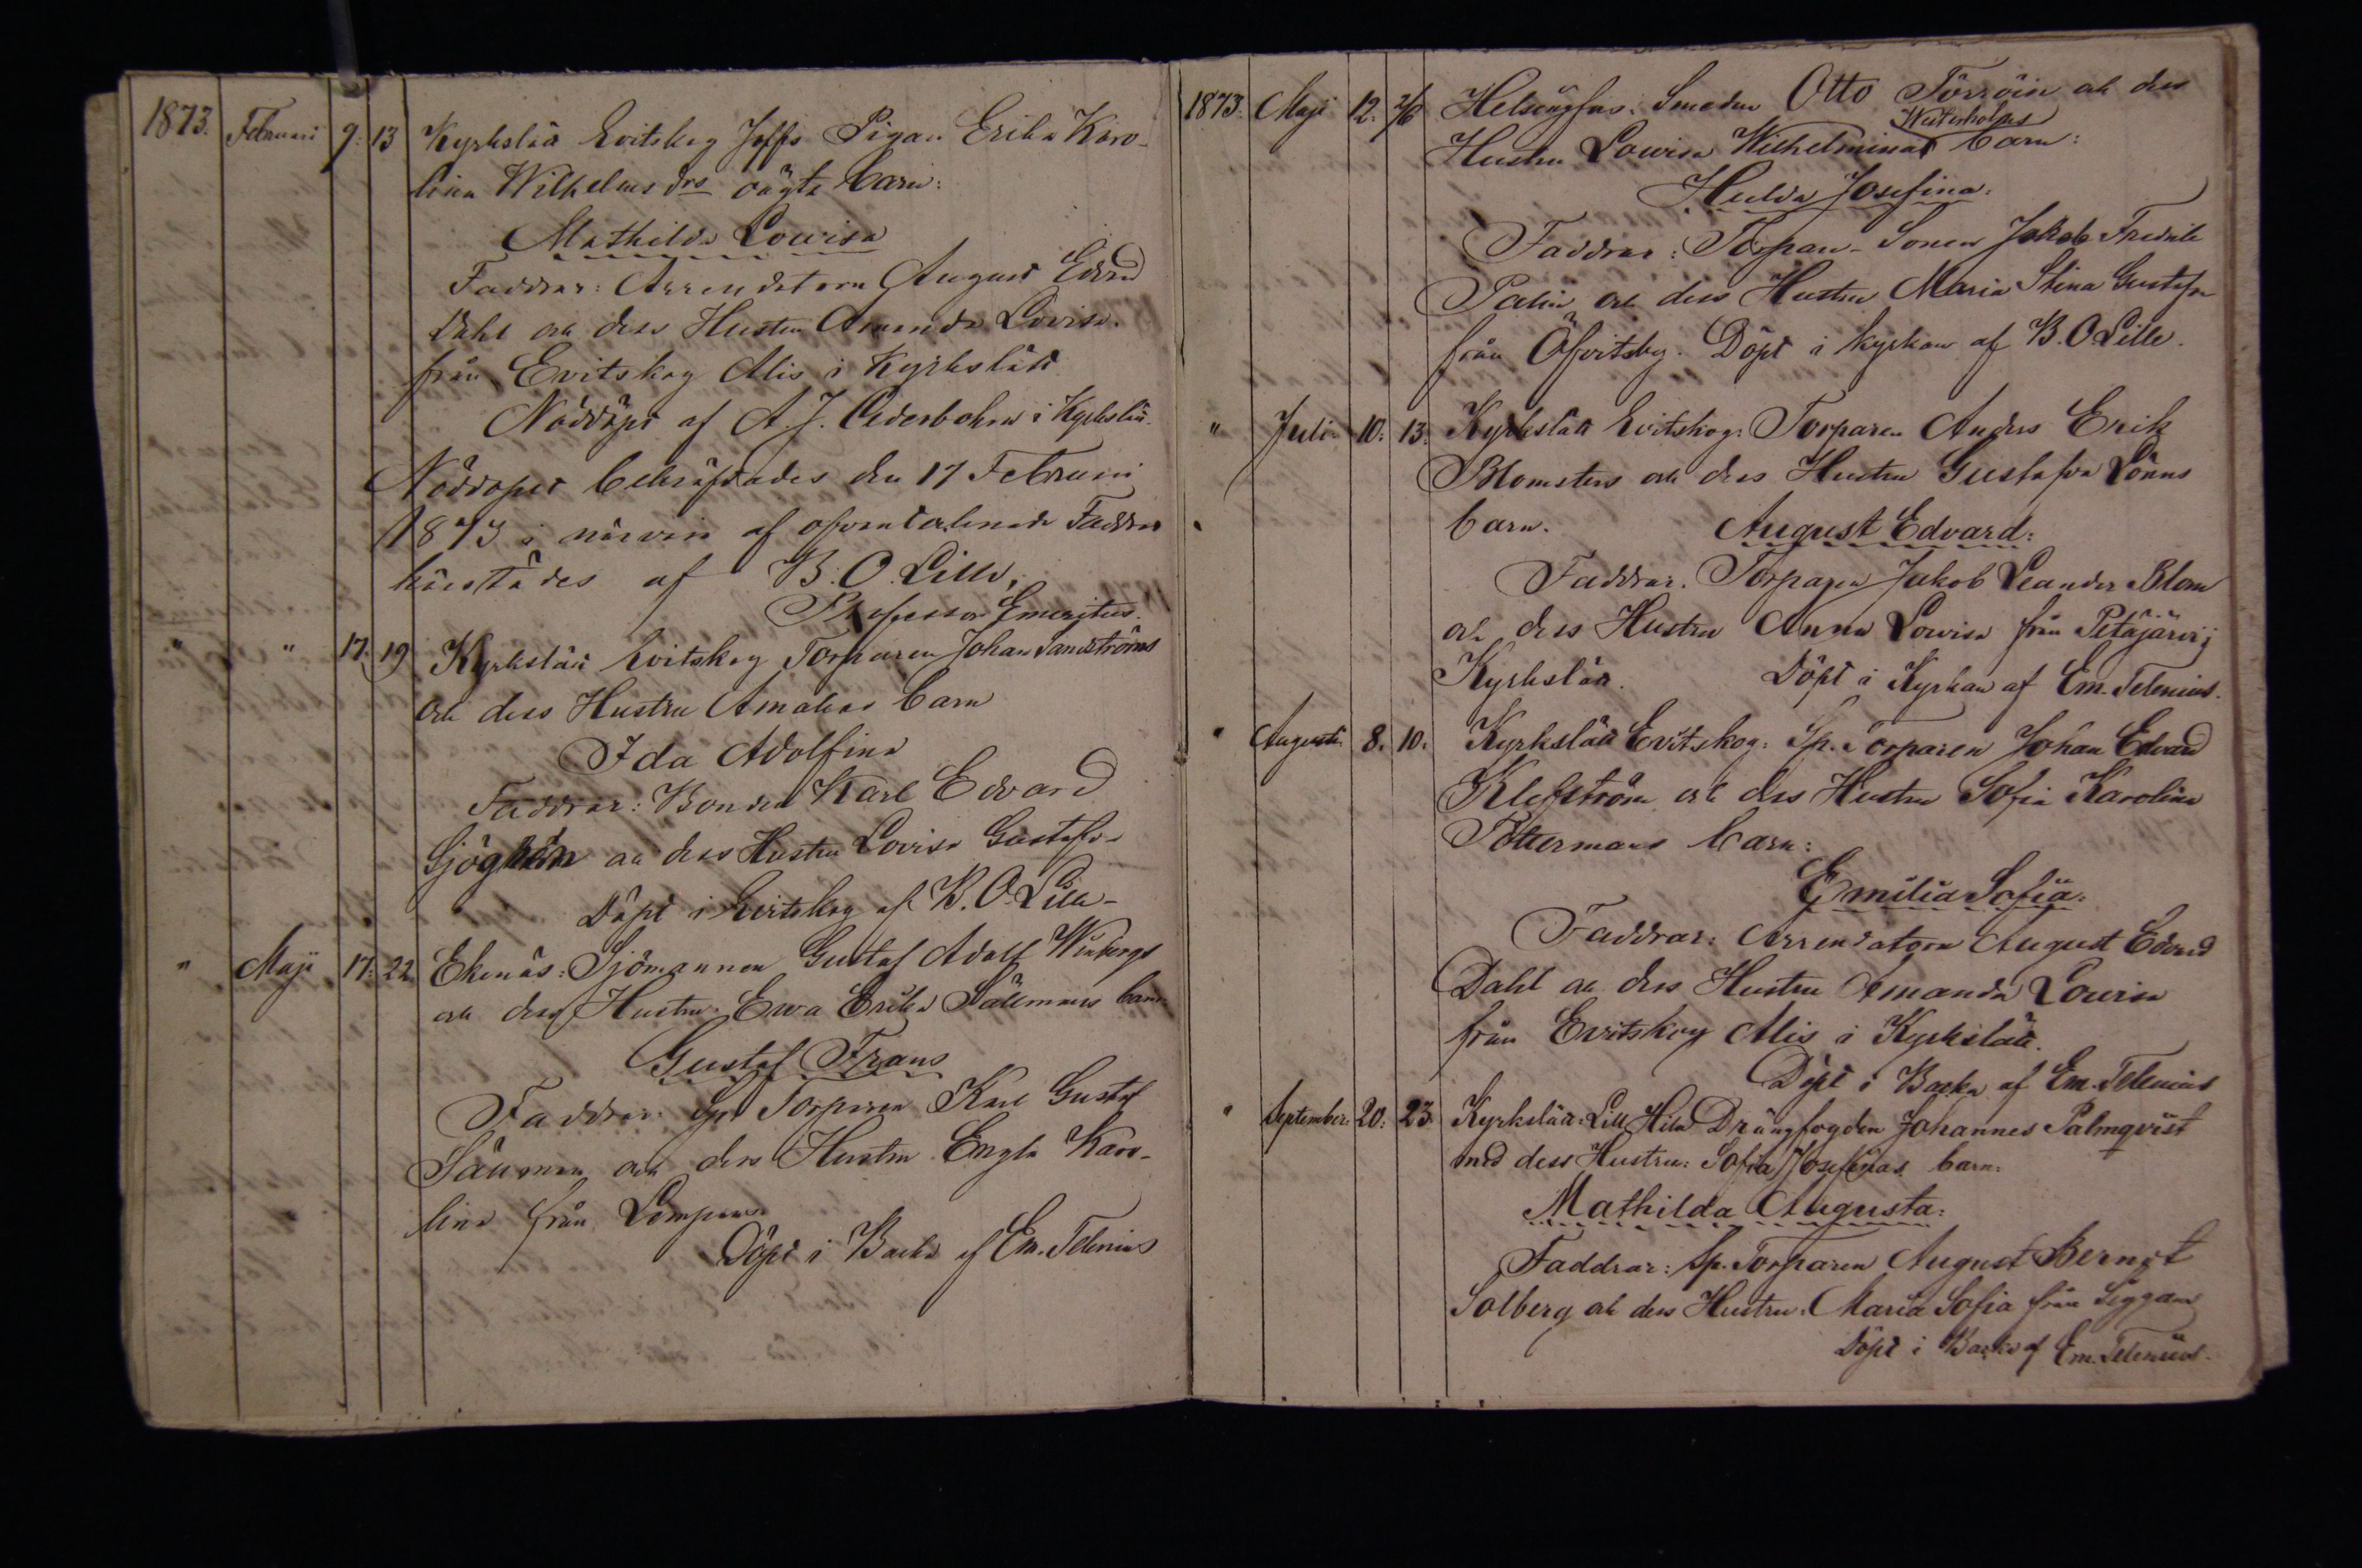 1873. Februari 9. 13 Kyrkslätt Evitskog Joffs Pigan Erika Karo-
lina Wilhelms drs oägta barn:
Mathilda Lowisa
Faddrar: Arrendatorn August Edvrd
Dahl och dess Hustru Amanda Lovisa.
från Evitskog Alis i Kyrkslätt
Nöddöpt af A. J. Cederbohm i Kyrkslätt.
Nöddopet bekräftades den 17 Februari
1873 i närvaro af ofvantecknade Faddrar
härstädes af B. O. Lille,
Professor Emeritus.
" " 17. 19 Kyrkslätt Evitskog Torparen Johan Sandströms
och dess Hustru Amalias barn
Ida Adolfina
Faddrar: Bonden Karl Edvard
och dess Hustru Lovisa Gustafv-
Döpt i Evitskog af B. O. Lille-
" Maji 17. 22 Ekenäs: Sjömannen Gustaf Adolf Winbergs
och dess Hustru Ewa Erika barn
Gustaf Frans
Faddrar: Sp. Torparen Karl Gustaf
och dess Hustru Engla Karo-
lina från
Döpt i Backa af Em. Telenius
1873. Maji 12. 2/6 Helsingfors: Smeden Otto Törröin och dess
Westerholms
Hustru Lowisa Wilhelminas barn:
Hulda Josefina.
Faddrar: Torpare-Sonen Jakob Fredrik
Palin och dess Hustru Maria Stina Gustafva
från Öfvitsby. Döpt i kyrkan af B. O. Lille.
" Juli 10. 13. Kyrkslätt Evitskog: Torparen Anders Erik
Blomsters och dess Hustru Gustafva Lönns
barn. August Edvard:
Faddrar. Torparen Jakob Leander Blom
och dess Hustru Anna Lowisa från Petäjärvi i
Kyrkslätt. Döpt i Kyrkan af Em. Telenius.
" Augusti 8. 10. Kyrkslätt Evitskog: Sp. Torparen Johan Edvard
Klefström och dess Hustru Sofia Karolina
barn:
Emilia Sofia.
Faddrar: Arrendatorn August Edvrd
Dahl och dess Hustru Amanda Lowisa
från Evitskog Alis i Kyrkslätt.
Döpt i Backa af Em. Telenius
" September. 20. 23. Kyrkslätt: Lill Hila Drängfogden Johannes Palmqvist
med dess Hustru: Sofia Josefinas barn:
Mathilda Augusta:
Faddrar: Sp. Torparen August Berndt
Solberg och dess Hustru: Maria Sofia från Siggans
Döpt i Backa af Em. Telenius.